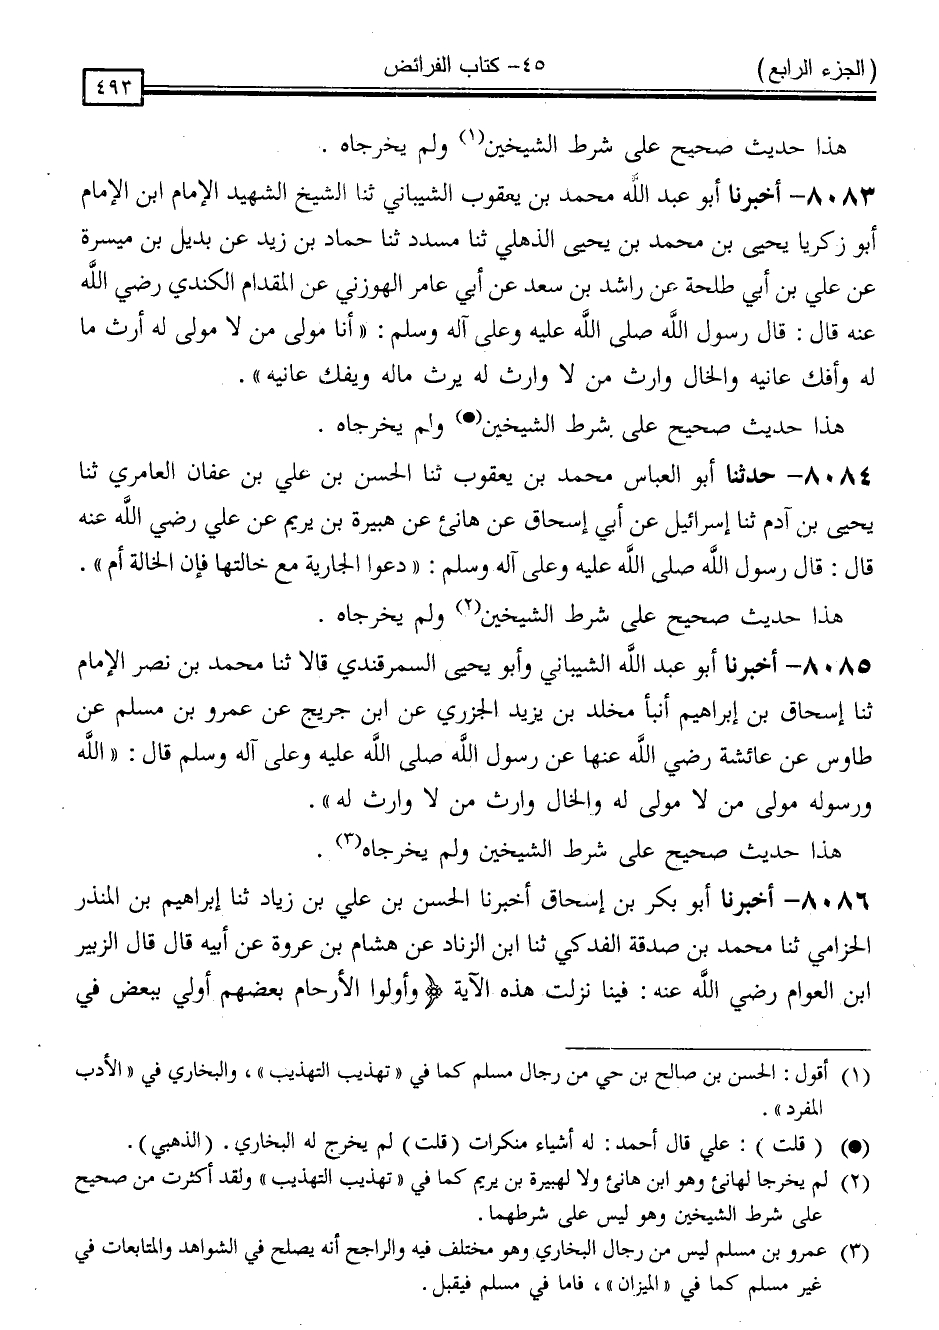 (الجزء الرابع)
٤٥- كتاب الفرائض
٤٩٣
هذا حديث صحيح على شرط الشيخين(١) ولم يخرجاه .
٨٠٨٣- أخبرنا أبو عبد اللَّه محمد بن يعقوب الشيباني ثنا الشيخ الشهيد الإمام ابن الإمام
أبو زكريا يحيى بن محمد بن يحيى الذهلي ثنا مسدد ثنا حماد بن زيد عن بديل بن ميسرة
عن علي بن أبي طلحة عن راشد بن سعد عن أبي عامر الهوزني عن المقدام الكندي رضي اللَّه
عنه قال : قال رسول اللَّه صلى اللَّه عليه وعلى آله وسلم : «أنا مولى من لا مولى له أرث ما
له وأفك عانيه والخال وارث من لا وارث له يرث ماله ويفك عانيه» .
هذا حديث صحيح على بشرط الشيخين(●) ولم يخرجاه .
٨٠٨٤- حدثنا أبو العباس محمد بن يعقوب ثنا الحسن بن علي بن عفان العامري ثنا
يحيى بن آدم ثنا إسرائيل عن أبي إسحاق عن هانئ عن هبيرة بن يريم عن علي رضي اللَّه عنه
قال : قال رسول اللَّه صلى اللَّه عليه وعلى آله وسلم : «دعوا الجارية مع خالتها فإن الخالة أم» .
هذا حديث صحيح على شرط الشيخين(٢) ولم يخرجاه .
٨٠٨٥- أخبرنا أبو عبد اللَّه الشيباني وأبو يحيى السمرقندي قالا ثنا محمد بن نصر الإمام
ثنا إسحاق بن إبراهيم أنبأ مخلد بن يزيد الجزري عن ابن جريج عن عمرو بن مسلم عن
طاوس عن عائشة رضي اللَّه عنها عن رسول اللَّه صلى اللَّه عليه وعلى آله وسلم قال : «اللَّه
ورسوله مولى من لا مولى له والخال وارث من لا وارث له» .
هذا حديث صحيح على شرط الشيخين ولم يخرجاه(٣) .
٨٠٨٦- أخبرنا أبو بكر بن إسحاق أخبرنا الحسن بن علي بن زياد ثنا إبراهيم بن المنذر
الحزامي ثنا محمد بن صدقة الفدكي ثنا ابن الزناد عن هشام بن عروة عن أبيه قال قال الزبير
ابن العوام رضي اللَّه عنه : فينا نزلت هذه الآية ﴿وأولوا الأرحام بعضهم أولي ببعض في
(١) أقول : الحسن بن صالح بن حي من رجال مسلم كما في «تهذيب التهذيب» ، والبخاري في «الأدب
المفرد» .
(●) (قلت) : علي قال أحمد : له أشياء منكرات (قلت) لم يخرج له البخاري . (الذهبي) .
(٢) لم يخرجا لهانئ وهو ابن هانئ ولا لهبيرة بن يريم كما في «تهذيب التهذيب» ولقد أكثرت من صحيح
على شرط الشيخين وهو ليس على شرطهما .
(٣) عمرو بن مسلم ليس من رجال البخاري وهو مختلف فيه والراجح أنه يصلح في الشواهد والمتابعات في
غير مسلم كما في «الميزان» ، فاما في مسلم فيقبل .